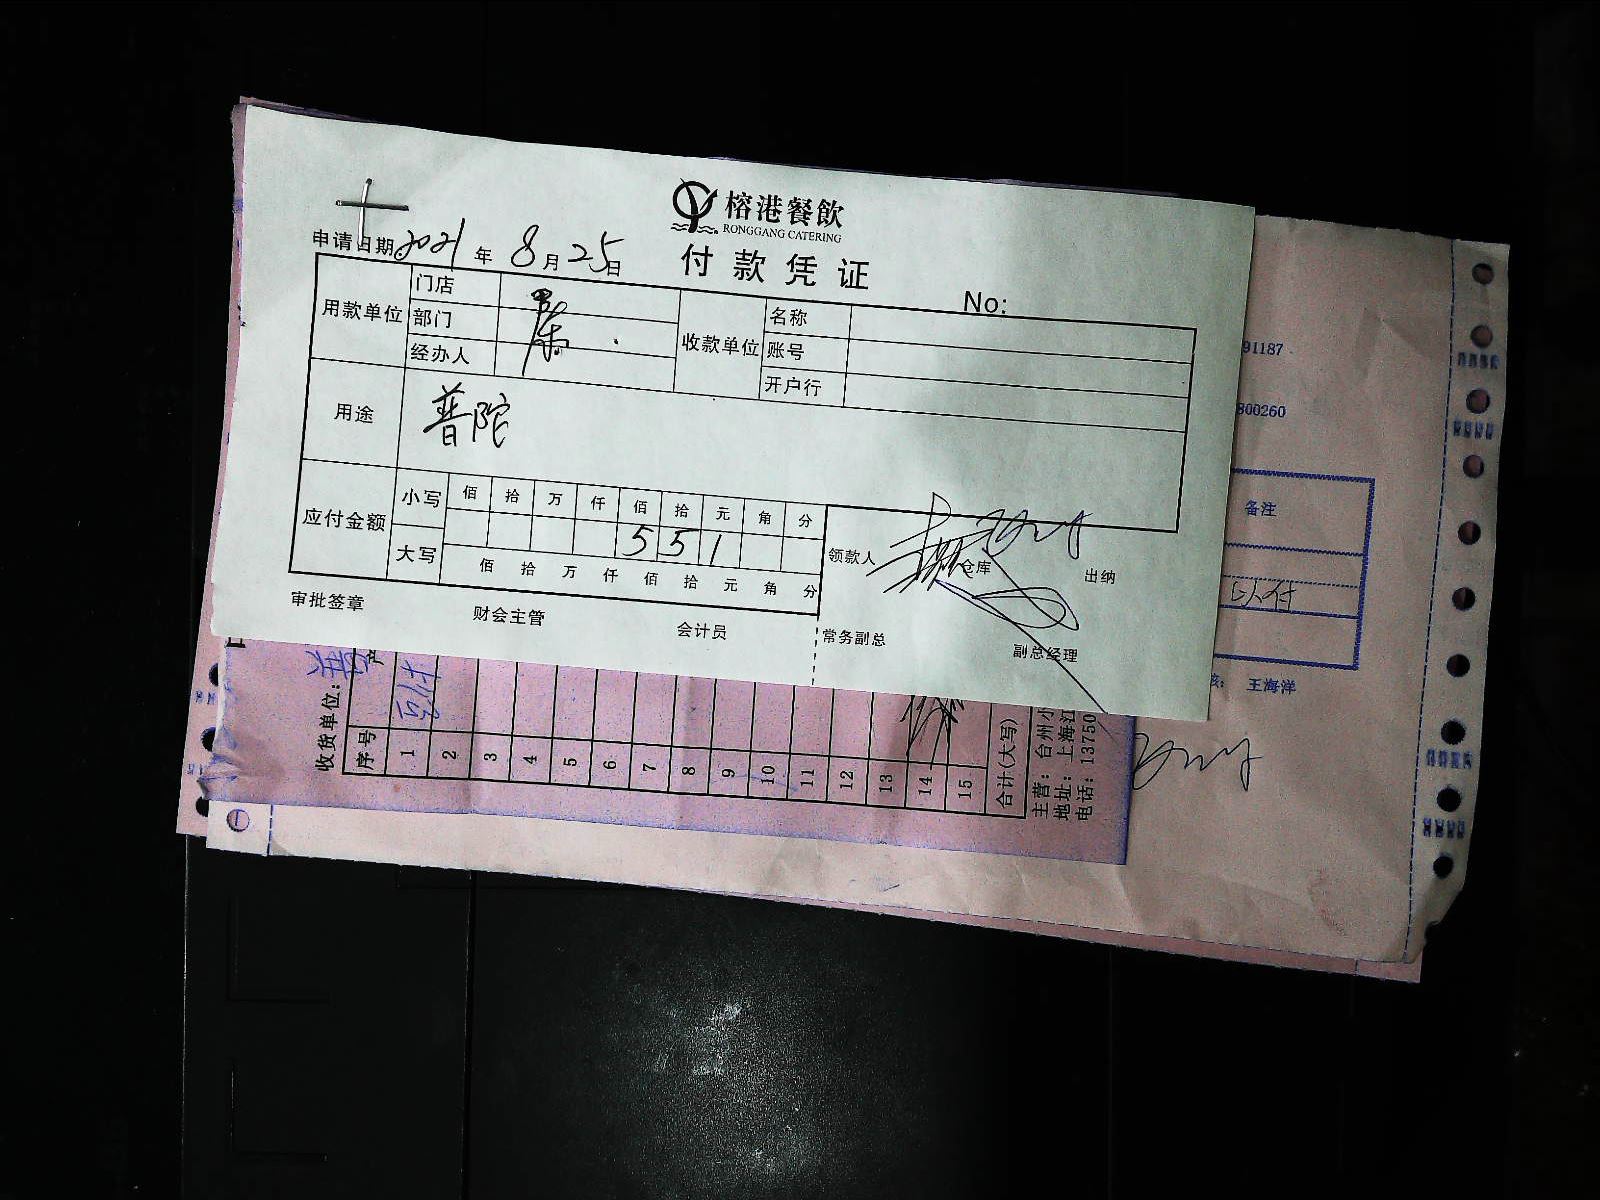 榕港餐飲
RONGGANG CATERING
付款凭证
申请日期 2021年8月25日
No:
用款单位 门店
部门
经办人
收款单位 名称
账号
开户行
用途 普陀
应付金额 小写 佰 拾 万 仟 佰 拾 元 角 分
5 5 1
大写 佰 拾 万 仟 佰 拾 元 角 分
领款人 仓库 出纳
审批签章 财会主管 会计员 常务副总 副总经理
91187
800260
备注
以付
王海洋
收货单位：
序号 1 2 3 4 5 6 7 8 9 10 11 12 13 14 15
合计(大写)
主营：台州小
地址：上海江
电话：13750